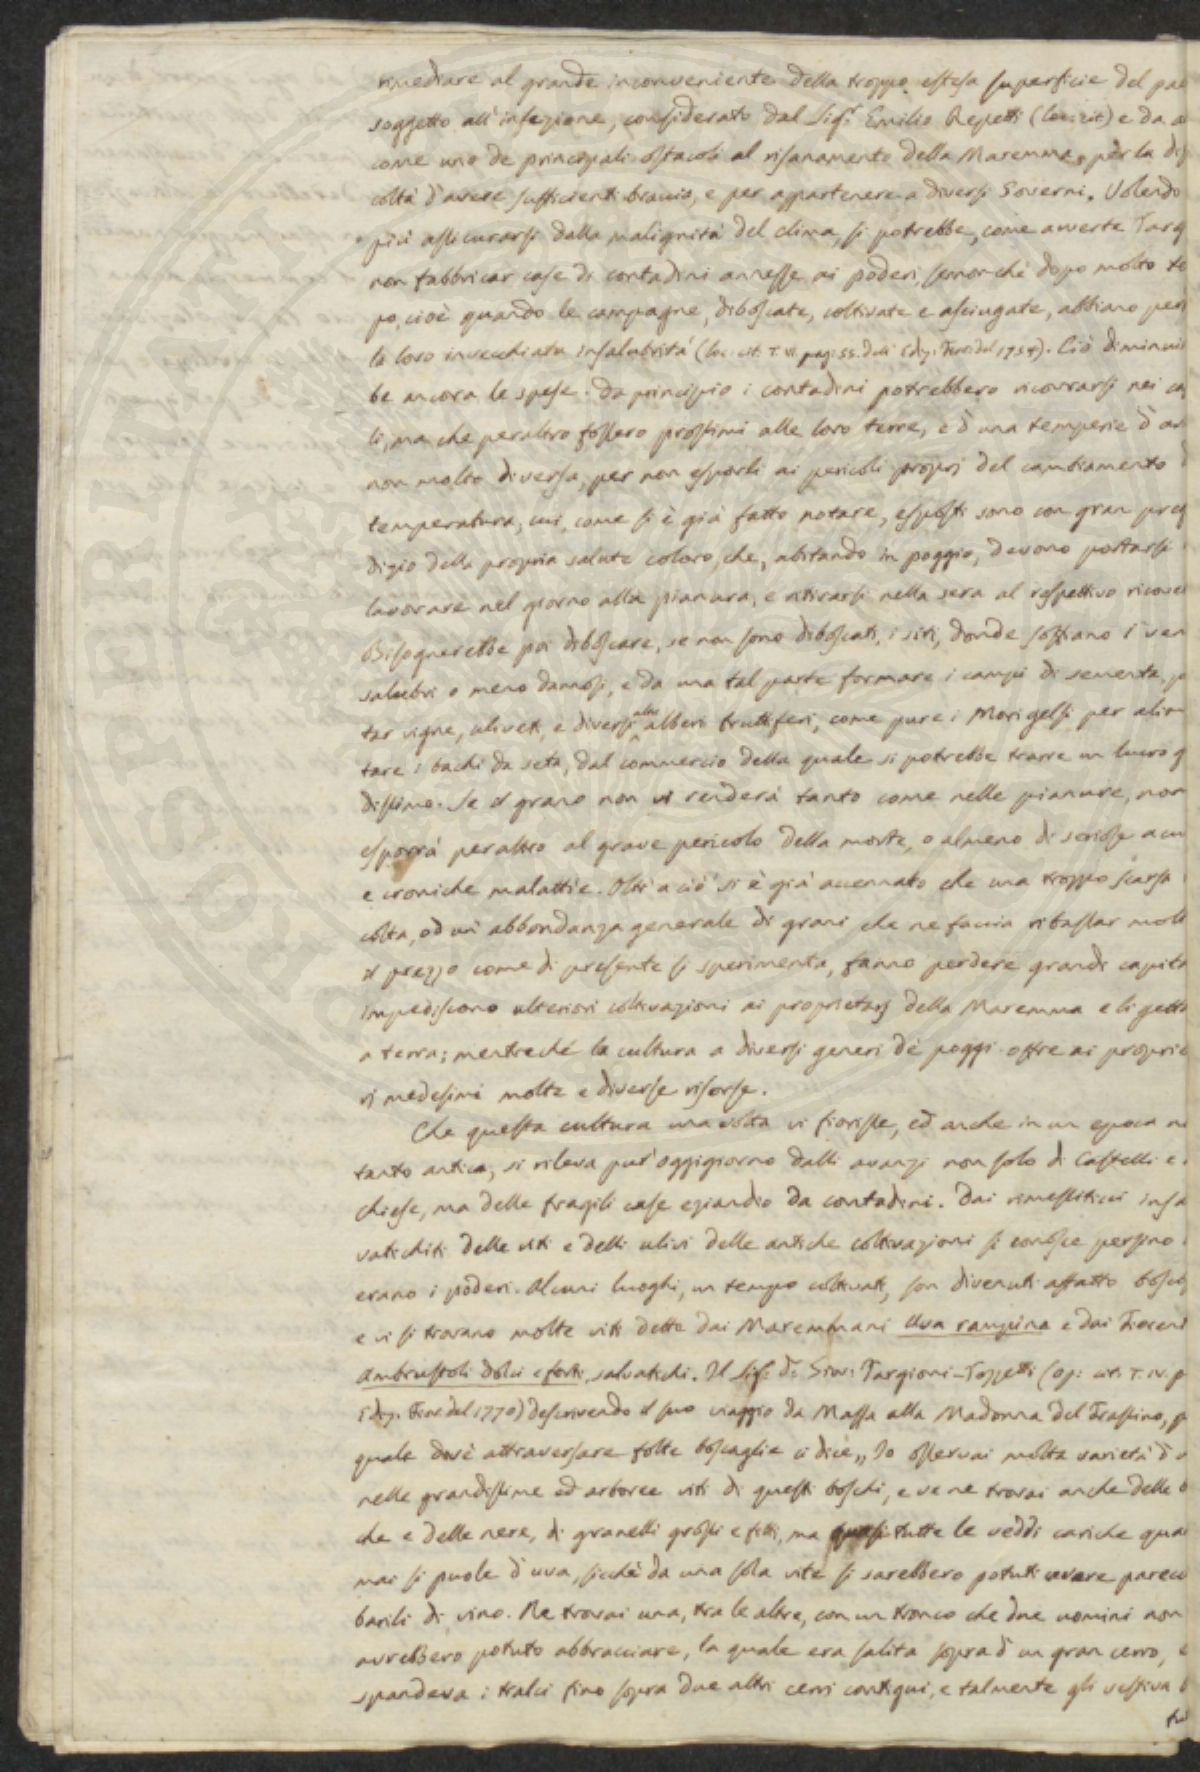 rimediare al grande inconveniente della troppo estesa superficie del pae
soggetto all'infezione, considerato dal Sig.r Emilio Repetti (loc: cit) e da a
come uno de principali ostacoli al risanamento della Maremma, per la dif
coltà d'avere sufficienti braccia, e per appartenere a diversi Governi. Volendo
più assicurarsi dalla malignità del clima, si potrebbe, come avverte Targ
non fabbricar case di contadini annesse ai poderi, senonchè dopo molto te
po, cioè quando le campagne, diboscate, coltivate e asciugate, abbiano per
la loro invecchiata insalubrità (loc: cit. T. VI. pag: 55. dell' Ediz. Fior: del 1754). Ciò diminui
be ancora le spese. Da principio i contadini potrebbero ricovrarsi nei ca
li, ma che peraltro fossero prossimi alle loro terre, e d'una temperie d'ar
non molto diversa, per non esporli ai pericoli proprj del cambiamento d
temperatura, cui, come si è già fatto notare, esposti sono con gran preg
dizio della propria salute coloro, che, abitando in poggio, devono portarsi
lavorare nel giorno alla pianura, e ritirarsi nella sera al respettivo ricover
Bisognerebbe poi diboscare, se non sono diboscati, i siti, donde soffiano i ven
salubri o meno dannosi, e da una tal parte formare i campi di sementa, p
tar vigne, uliveti, e diversi altri alberi fruttiferi, come pure i Morigelsi per alim
tare i bachi da seta, dal commercio della quale si potrebbe trarre un lucro g
dissimo. Se il grano non vi renderà tanto come nelle pianure, non
esporrà peraltro al grave pericolo della morte, o almeno di seriose acu
e croniche malattie. Oltr' a ciò si è già accennato che una troppo scarsa
colta, od un' abbondanza generale di grani che ne faccia ribassar molt
il prezzo come di presente si sperimenta, fanno perdere grandi capita
impediscono ulteriori coltivazioni ai proprietarj della Maremma e li getta
a terra; mentrechè la cultura a diversi generi de' poggi offre ai propriet
rj medesimi molte e diverse risorse.
Che questa cultura una volta vi fiorisse, ed anche in un epoca no
tanto antica, si rileva pur' oggigiorno dalli avanzi non solo di Castelli e
chiese, ma delle fragili case eziandio da contadini. Dai rimessiticci insal
vatichiti delle viti e delli ulivi delle antiche coltivazioni si conosce persino
erano i poderi. Alcuni luoghi, un tempo coltivati, son divenuti affatto bosch
e vi si trovano molte viti dette dai Maremmani Uva rampina e dai Fiorent
Ambrustoli dolci e forti, salvatichi. Il Sig.r D.r Giov: Targioni-Tozzetti (op: cit. T. IV. p
Ediz. Fior: del 1770) descrivendo il suo viaggio da Massa alla Madonna del Frassino, p
quale dovè attraversare folte boscaglie ci dice „ Io osservai molta varietà d'u
nelle grandissime ed arboree viti di questi boschi, e ve ne trovai anche delle b
che e delle nere, di granelli grossi e fitti, ma quasi tutte le veddi cariche qua
mai si puole d'uva, sicchè da una sola vite si sarebbero potuti avere parecc
barili di vino. Ne trovai una, tra le altre, con un tronco che due uomini non
avrebbero potuto abbracciare, la quale era salita sopra d'un gran cerro, e
spandeva i tralci fino sopra due altri cerri contigui, e talmente gli vestiva